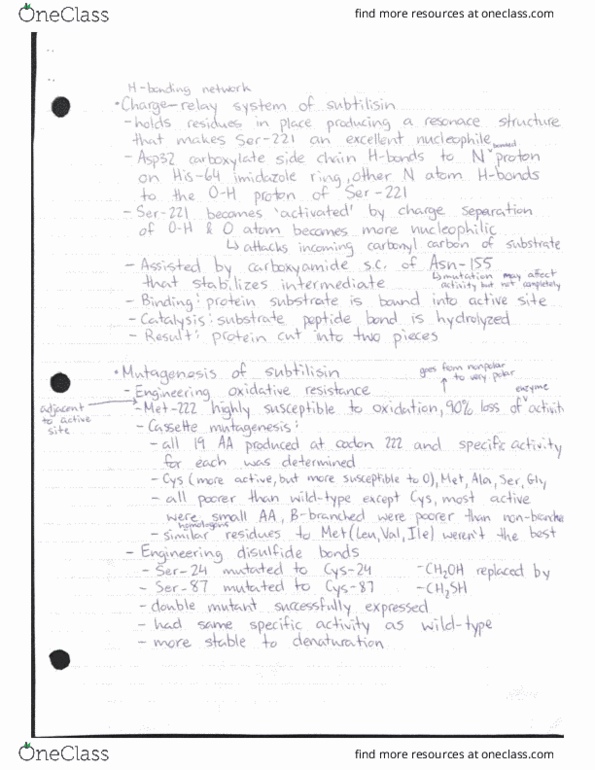 OneClass
find more resources at oneclass.com
H-bonding network
• Charge-relay system of subtilisin
- holds residues in place producing a resonace structure
that makes Ser-221 an excellent nucleophile
- Asp32 carboxylate side chain H-bonds to N bonded proton
on His-64 imidazole ring, other N atom H-bonds
to the O-H proton of Ser-221
- Ser-221 becomes 'activated' by charge separation
of O-H & O atom becomes more nucleophilic
↳ attacks incoming carbonyl carbon of substrate
- Assisted by carboxyamide s.c. of Asn-155
↳ mutation may affect
activity but not completely
that stabilizes intermediate
- Binding: protein substrate is bound into active site
- Catalysis: substrate peptide bond is hydrolyzed
- Result: protein cut into two pieces
• Mutagenesis of subtilisin
goes from nonpolar
to very polar
- Engineering oxidative resistance
adjacent
to active
site
- Met-222 highly susceptible to oxidation, 90% loss of enzyme activit
- Cassette mutagenesis:
- all 19 AA produced at codon 222 and specific activity
for each was determined
- Cys (more active, but more susceptible to O), Met, Ala, Ser, Gly
- all poorer than wild-type except Cys, most active
were small AA, B-branched were poorer than non-branche
homologous
- similar residues to Met (Leu, Val, Ile) weren't the best
- Engineering disulfide bonds
- Ser-24 mutated to Cys-24 -CH2OH replaced by
- Ser-87 mutated to Cys-87 -CH2SH
- double mutant successfully expressed
- had same specific activity as wild-type
- more stable to denaturation
OneClass
find more resources at oneclass.com